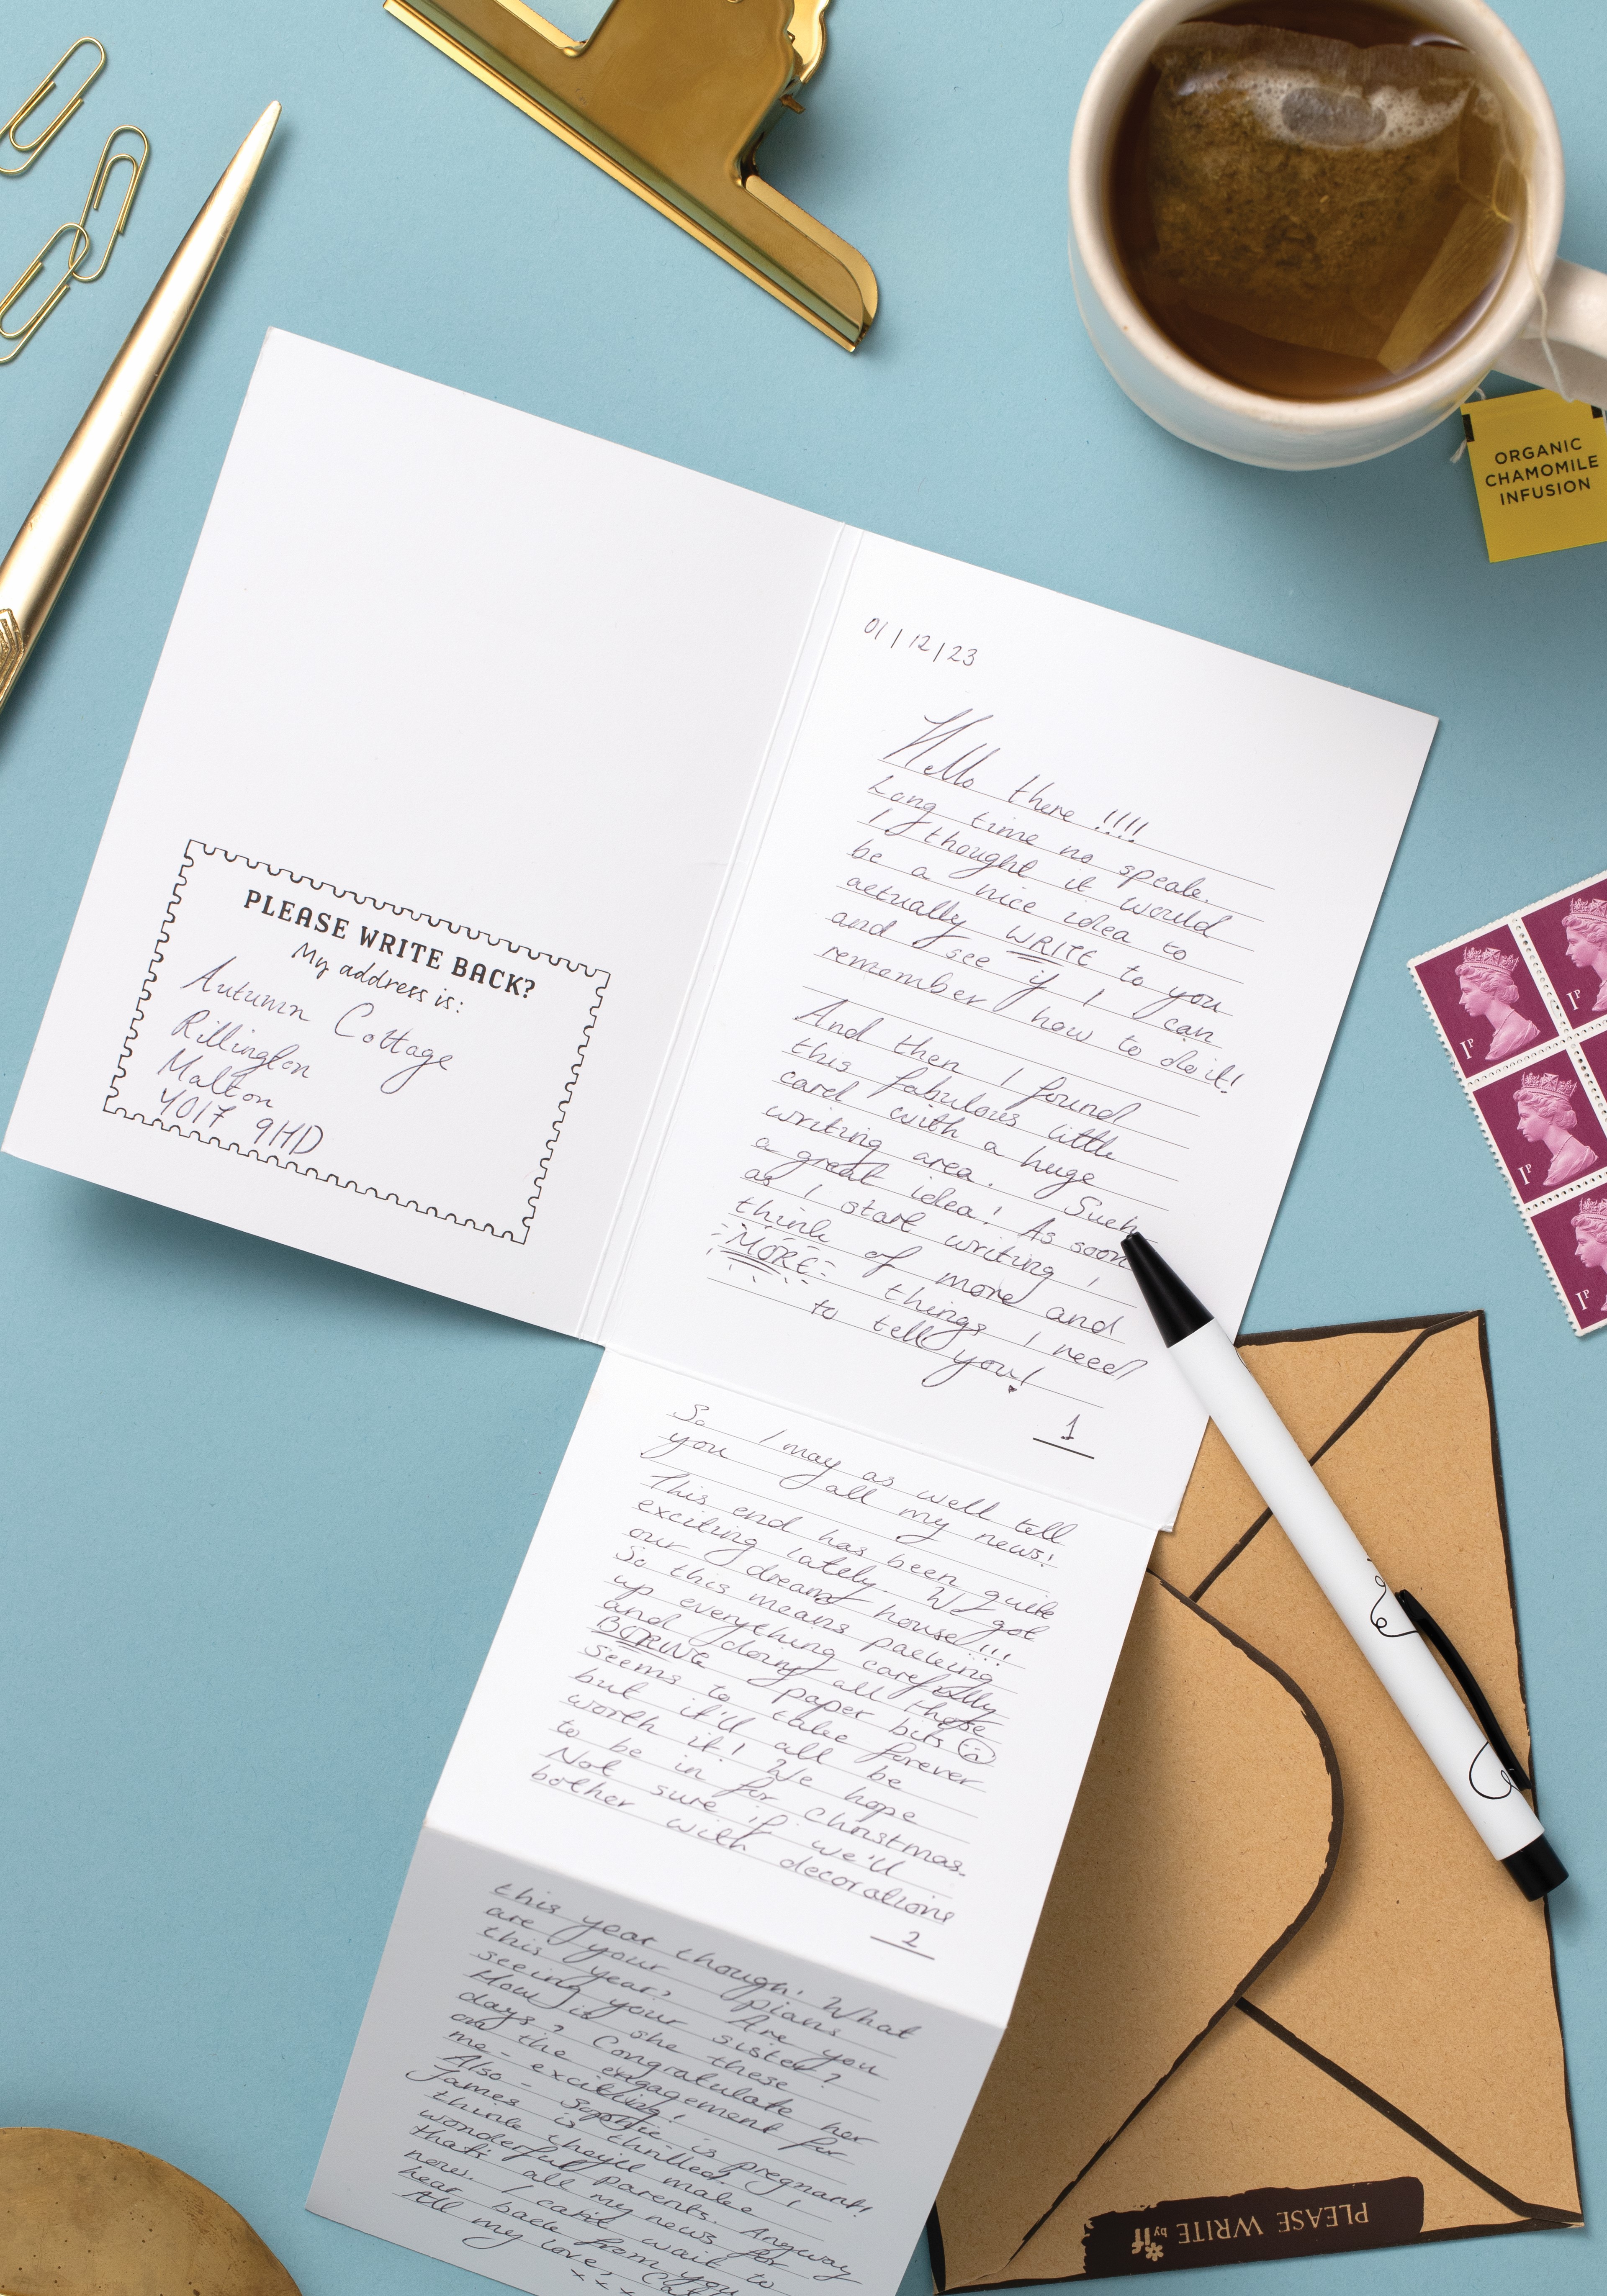 ORGANIC
CHAMOMILE
INFUSION
PLEASE WRITE BACK?
My address is:
Autumn Cottage
Rillington
Malton
YO17 9HD
01/12/23
Hello there!!!!
Long time no speak.
I thought it would
be a nice idea to
actually WRITE to you
and see if I can
remember how to do it!
And then I found
this fabulous little
card with a huge
writing area. Such
a great idea! As soon
as I start writing I
think of more and
MORE things I need
to tell you!
1
So I may as well tell
you all my news!
This end has been quite
exciting lately. We got
our dream house!!!
So this means packing
up everything carefully
and doing all those
BORING paper bits
seems to take forever
but it'll all be
worth it! We hope
to be in for Christmas.
Not sure if we'll
bother with decorations
2
this year though. What
are your plans
this year? Are you
seeing your sister?
How is she these
days? Congratulate her
on the engagement for
me - exciting!
Also - Sophie is pregnant!
James is thrilled. I
think they'll make
wonderful parents. Anyway
that's all my news for
now. I can't wait to
hear back from you
All my love,
x x x
1P
1P
1P
1P
PLEASE WRITE by if